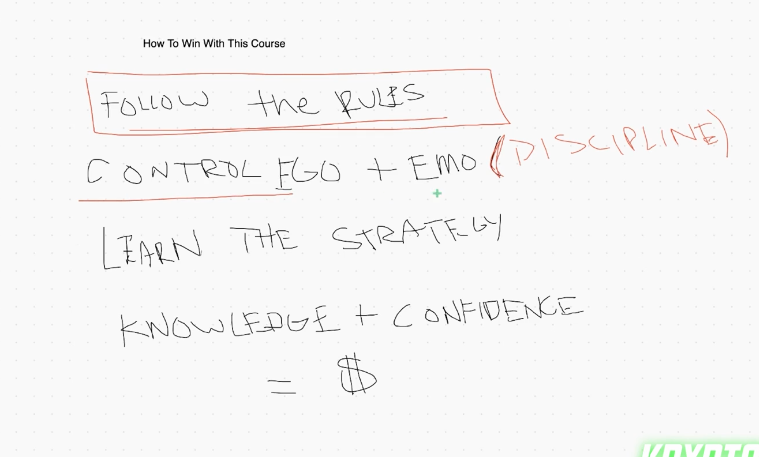 How To Win With This Course
FOLLOW the RULES
CONTROL EGO + EMO (DISCIPLINE)
LEARN THE STRATEGY
KNOWLEDGE + CONFIDENCE
= $